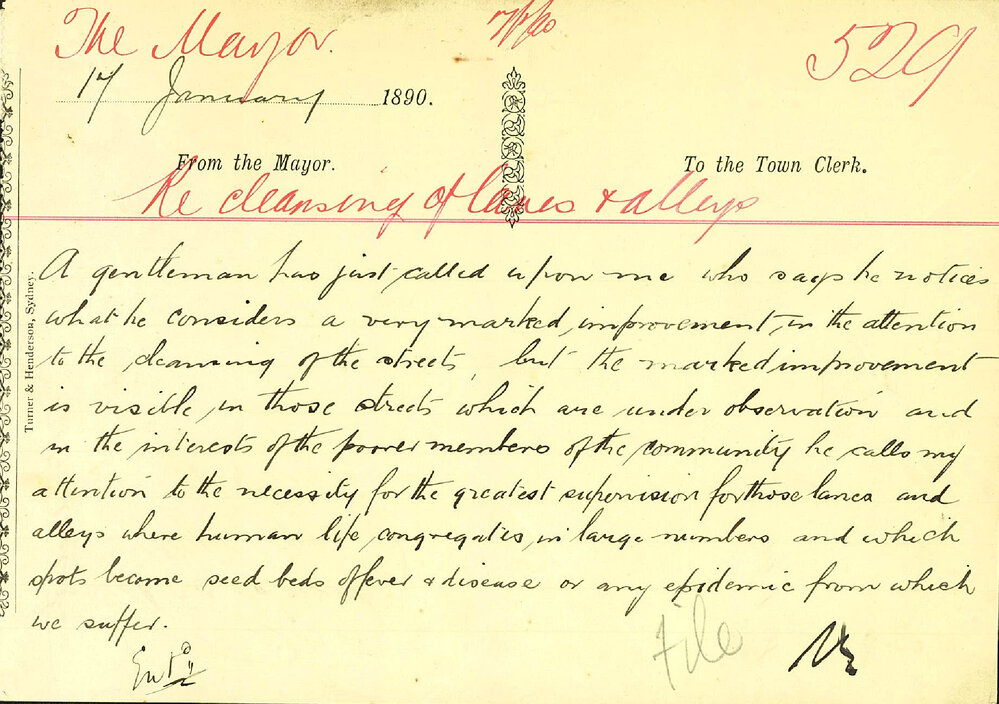 The Mayor.
529
17 January 1890.
From the Mayor.
To the Town Clerk.
Re cleansing of lanes & alleys
Turner & Henderson, Sydney.
A gentleman has just called upon me who says he notices
what he considers a very marked improvement in the attention
to the cleansing of the streets, but the marked improvement
is visible in those streets which are under observation and
in the interests of the poorer members of the community he calls my
attention to the necessity for the greatest supervision for those lanes and
alleys where human life congregates in large numbers and which
spots become seed beds of fever & disease or any epidemic from which
we suffer.
File